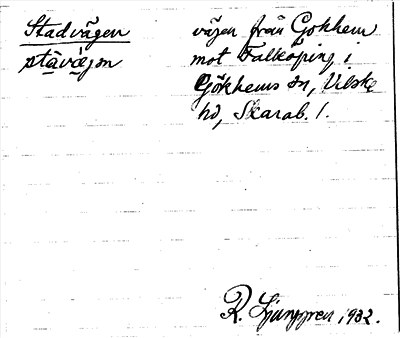 Stadvägen
stàvǽgən
vägen från Gökhem
mot Falköping, i
Gökhems sn, Vilske
hd, Skarab. l.
R. Ljunggren 1932.